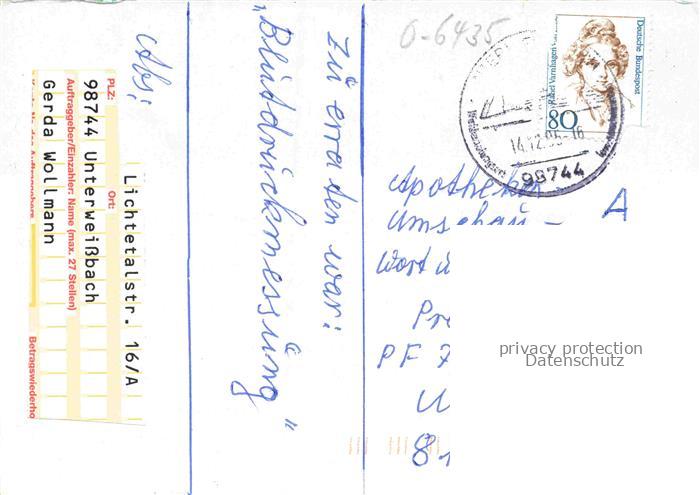 0-6435
Deutsche Bundespost
Rahel Varnhagen
80
14.12.95-16
98744
Abs:
PLZ: Ort:
Lichtetalstr. 16/A
98744 Unterweißbach
Auftraggeber/Einzahler: Name (max. 27 Stellen)
Gerda Wollmann
Betragswiederho
Zu erraten war:
„Blutdruckmessung"
Apotheken-
Umschau -
Wort
Pr
PF 7
U
8
A
privacy protection
Datenschutz